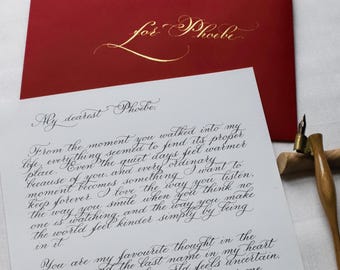 for Phoebe
My dearest Phoebe,
From the moment you walked into my
life, everything seemed to find its proper
place. Even the quiet days feel warmer
because of you, and every ordinary
moment becomes something I want to
keep forever. I love the way you listen,
the way you smile when you think no
one is watching, and the way you make
the world feel kinder simply by being
in it.
You are my favourite thought in the
and the last name in my heart
feels uncertain,